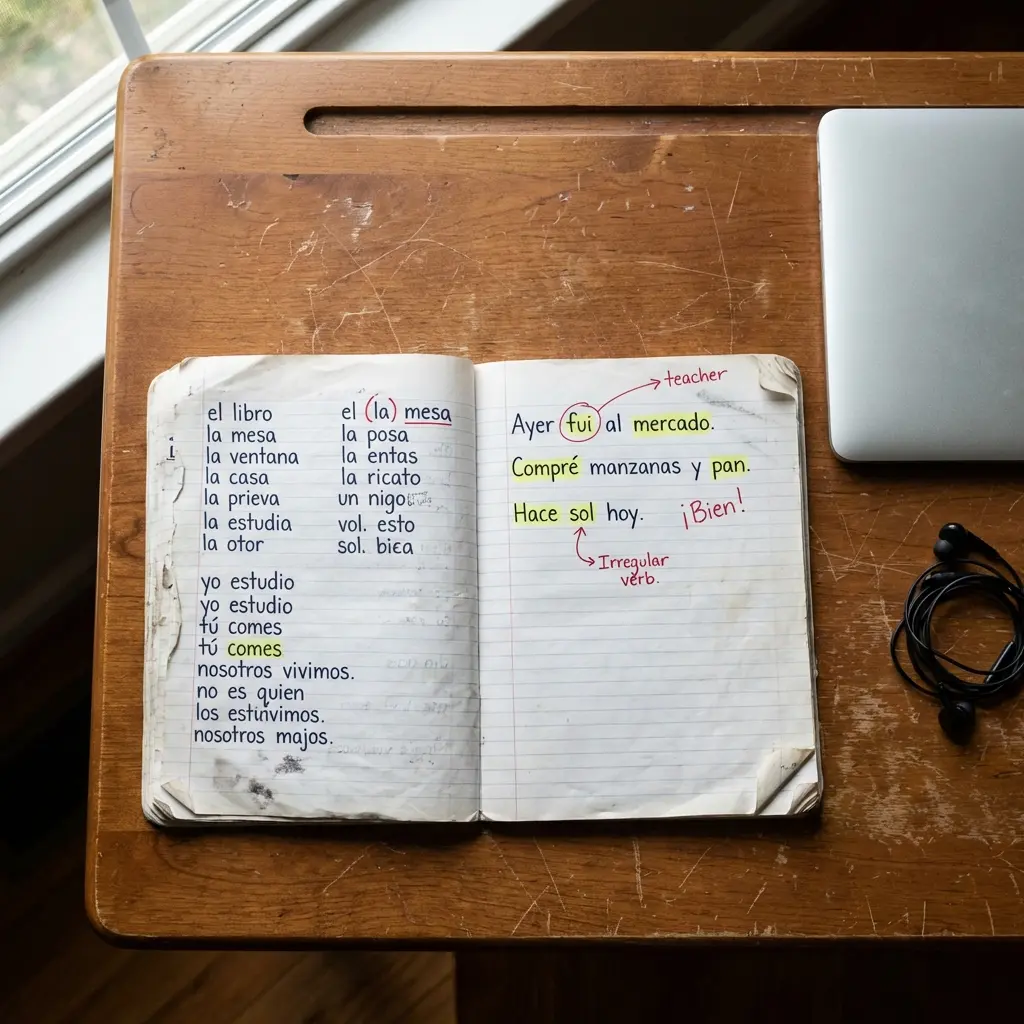 el libro
la mesa
la ventana
la casa
la prieva
la estudia
la otor
yo estudio
yo estudio
tú comes
tú comes
nosotros vivimos.
no es quien
los estinvimos.
nosotros majos.
el (la) mesa
la posa
la entas
la ricato
un nigo
vol. esto
sol. bica
teacher
Ayer fui al mercado.
Compré manzanas y pan.
Hace sol hoy. ¡Bien!
Irregular
verb.